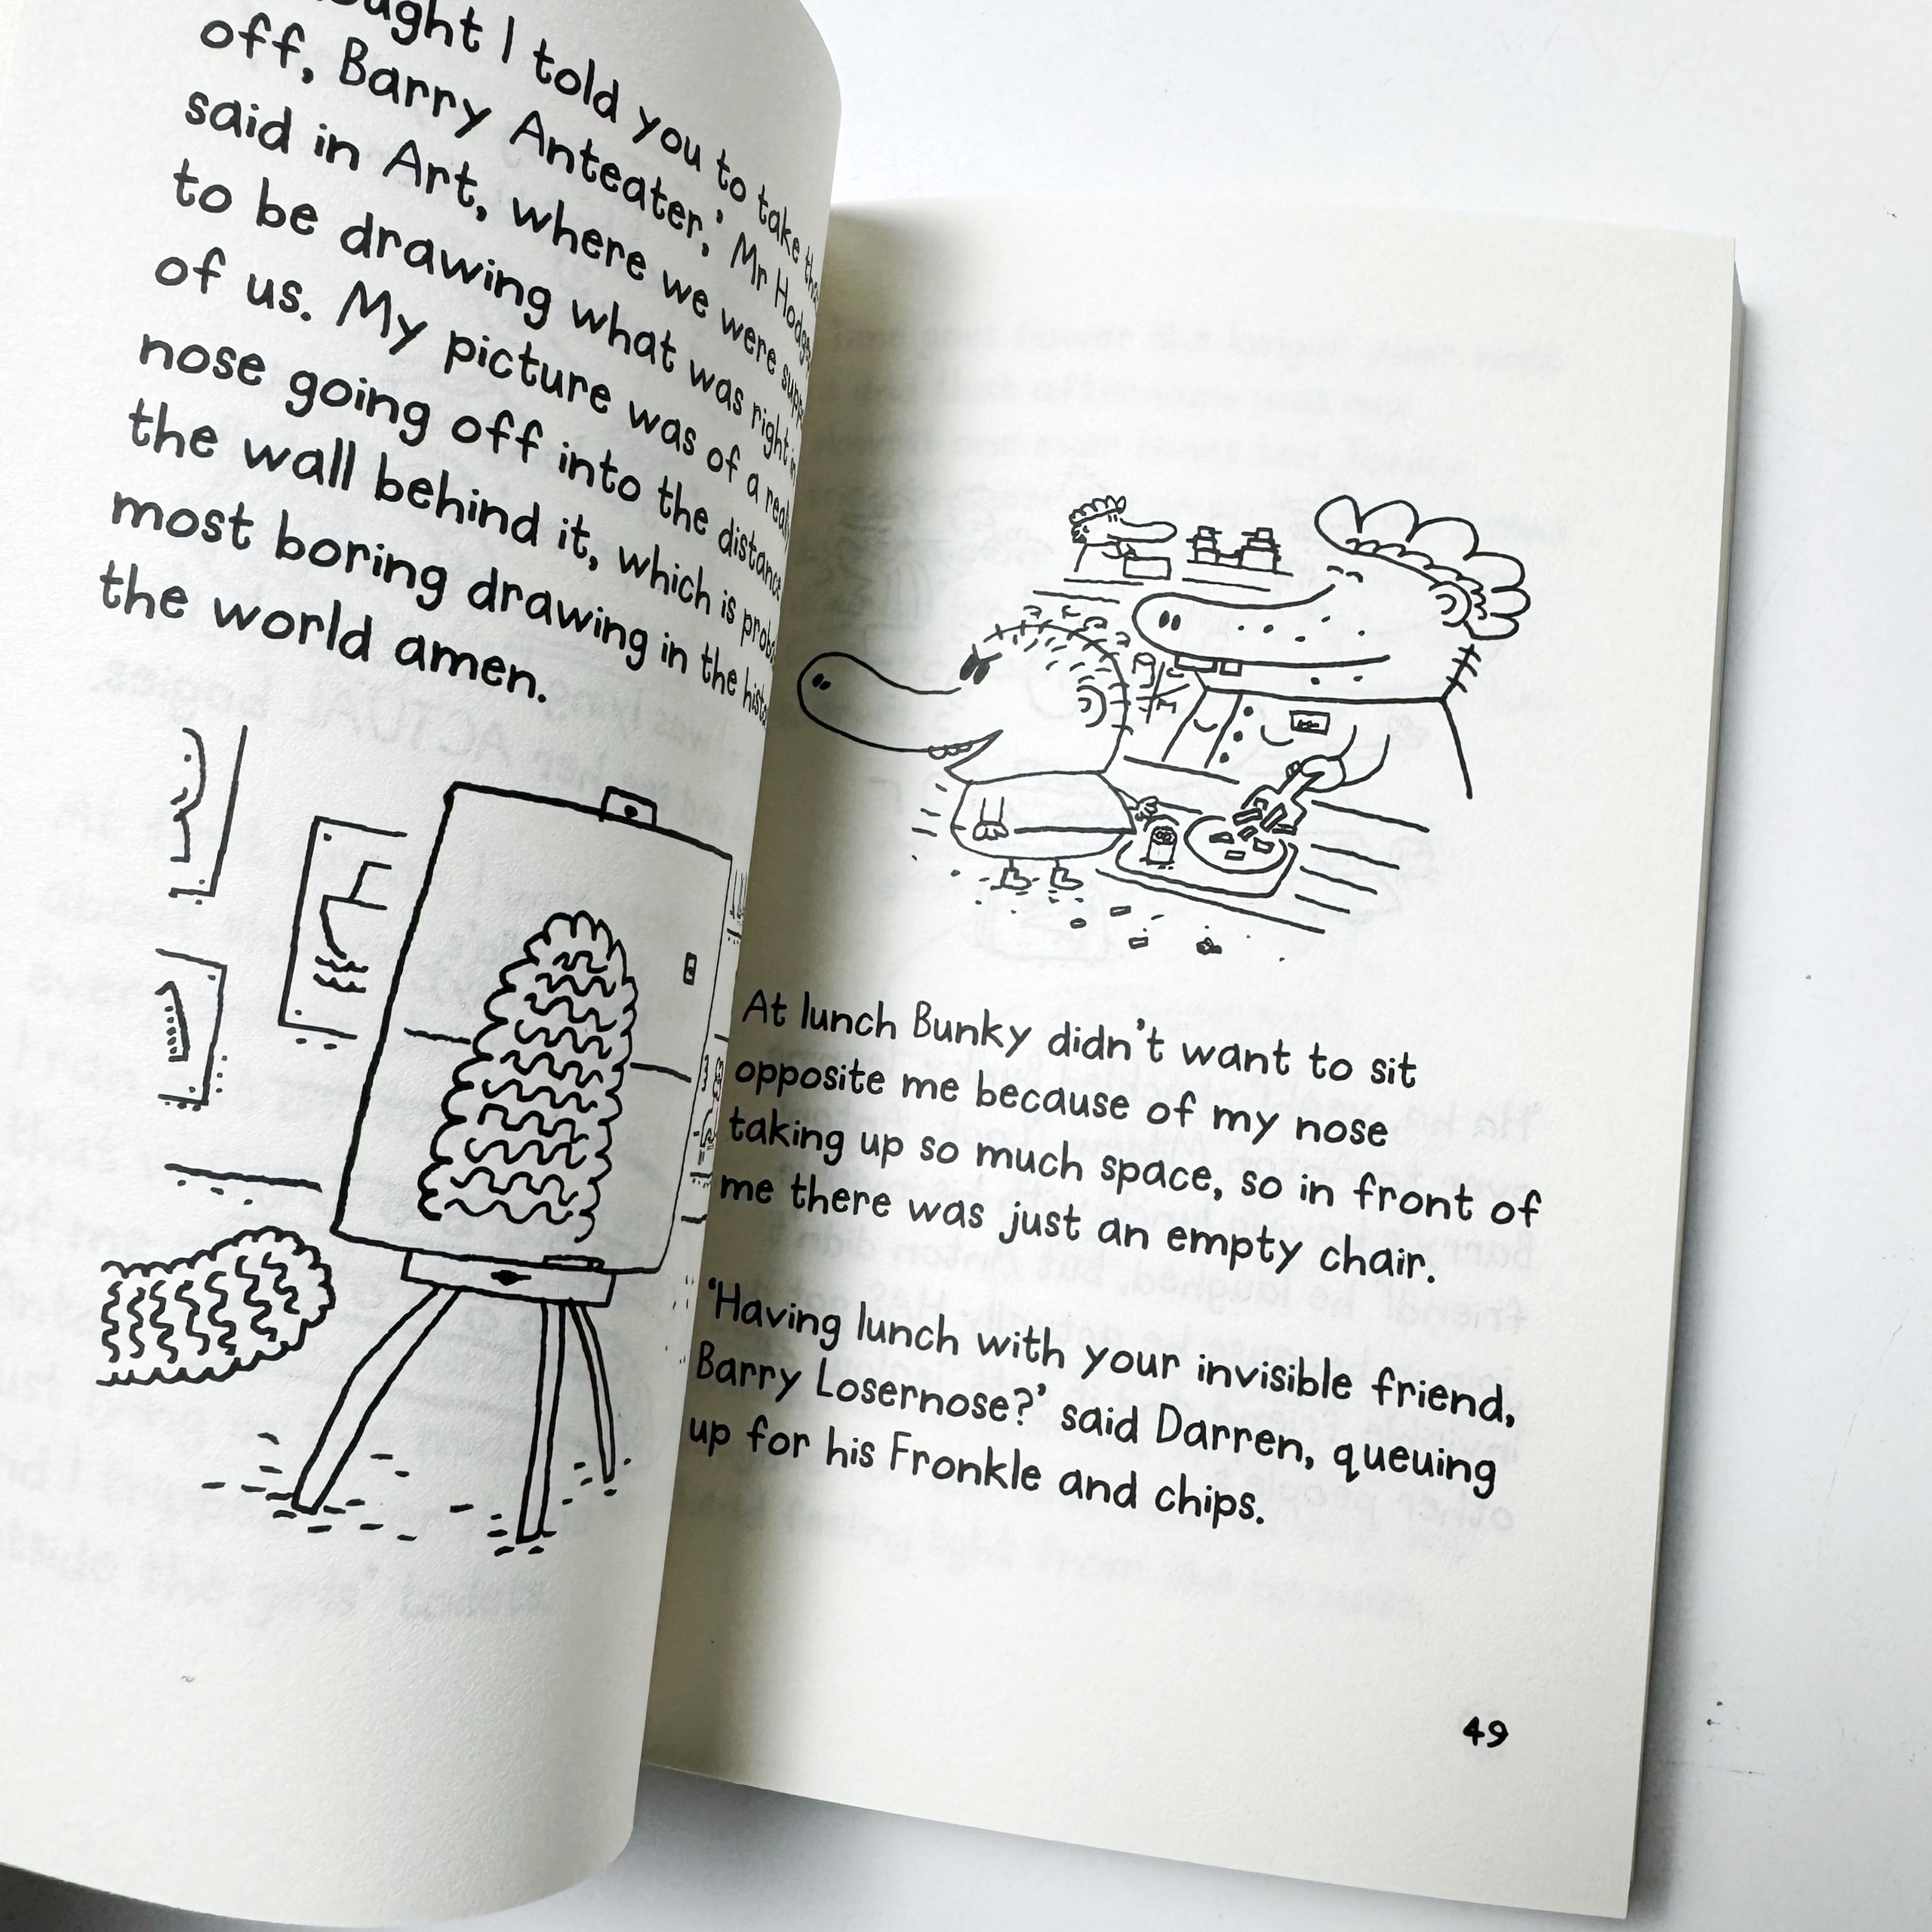 ought I told you to take
off, Barry Anteater,' Mr
said in Art, where we were
to be drawing what was right in
of us. My picture was of a
nose going off into the
the wall behind it, which is
most boring drawing in the
the world amen.
At lunch Bunky didn't want to sit
opposite me because of my nose
taking up so much space, so in front of
me there was just an empty chair.
'Having lunch with your invisible friend,
Barry Losernose?' said Darren, queuing
up for his Fronkle and chips.
49